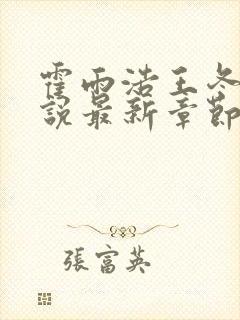 霍雨浩王冬
說最新章節
張富英